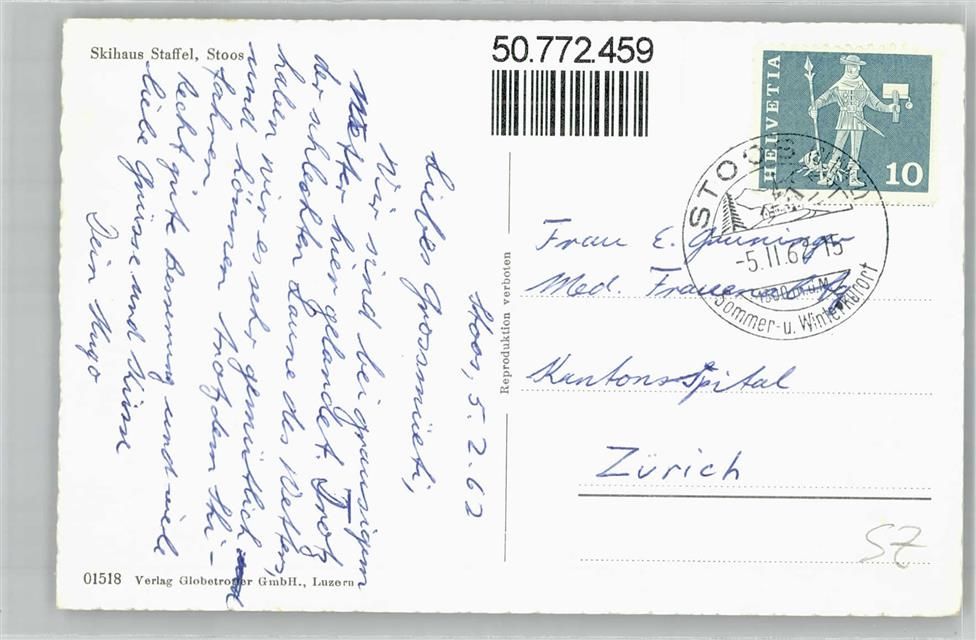 Skihaus Staffel, Stoos
50.772.459
HELVETIA
10
STOOS
-5.II.62-15
1300 m.ü.M.
Sommer- u. Winterkurort
Stoos, 5. 2. 62
Liebes Grossmüeti,
Wir sind bei grausigem
Wetter hier gelandet. Trotz
der schlechten Laune des Wetters,
haben wir es sehr gemütlich
und können trotzdem Ski-
fahren.
Recht gute Besserung und viele
liebe Grüsse und Küsse
Dein Hugo
Frau E.
Med.
Kantonsspital
Zürich
Reproduktion verboten
01518 Verlag Globetrotter GmbH., Luzern
SZ